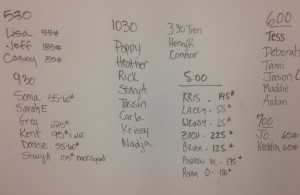 530
Lisa 55#
Jeff 185#
Casey 85#
930
Sonia 55-60#
Sarah E
Greg 225#
Kent 95#
Denise 55-60#
Stacy A
1030
Poppy
Heather
Rick
Stacy A
Tassin
Carla
Krissy
Nadja
3:30 Teen
Henry R
Connor
5:00
KRIS - 145#
LACEY - 55#
WENDY - 65#
ZACH - 225#
BRIAN - 125#
ANDREW M - 175#
RYAN D - 150#
600
Tess
Deborah
Tami
Jason
Maddie
Aidan
700
Jo 60#
Kendra 60#